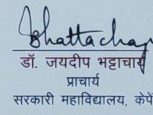 Bhattachar
डॉ. जयदीप भट्टाचार्य
प्राचार्य
सरकारी महाविद्यालय, केपे